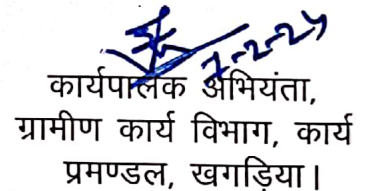 7-2-24
कार्यपालक अभियंता,
ग्रामीण कार्य विभाग, कार्य
प्रमण्डल, खगड़िया।